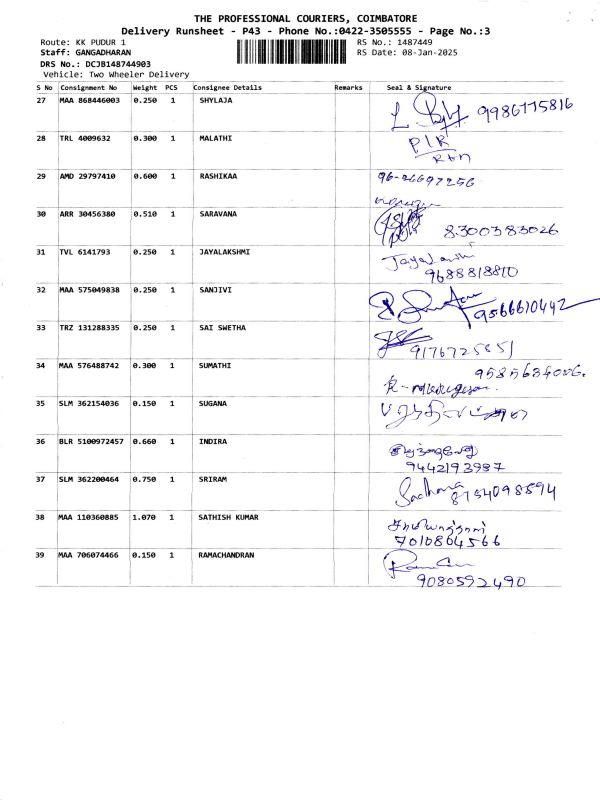 THE PROFESSIONAL COURIERS, COIMBATORE
Delivery Runsheet - P43 - Phone No.:0422-3505555 - Page No.:3
Route: KK PUDUR 1 RS No.: 1487449
Staff: GANGADHARAN RS Date: 08-Jan-2025
DRS No.: DCJB148744903
Vehicle: Two Wheeler Delivery
S No Consignment No Weight PCS Consignee Details Remarks Seal & Signature
27 MAA 868446003 0.250 1 SHYLAJA
28 TRL 4009632 0.300 1 MALATHI
29 AMD 29797410 0.600 1 RASHIKAA
30 ARR 30456380 0.510 1 SARAVANA 8300383026
31 TVL 6141793 0.250 1 JAYALAKSHMI
9688818810
32 MAA 575049838 0.250 1 SANJIVI 9566610442
33 TRZ 131288335 0.250 1 SAI SWETHA
9176725851
34 MAA 576488742 0.300 1 SUMATHI
35 SLM 362154036 0.150 1 SUGANA
36 BLR 5100972457 0.660 1 INDIRA
9442193987
37 SLM 362200464 0.750 1 SRIRAM Sadhana 8754098594
38 MAA 110360885 1.070 1 SATHISH KUMAR
7010864566
39 MAA 706074466 0.150 1 RAMACHANDRAN
9080592490